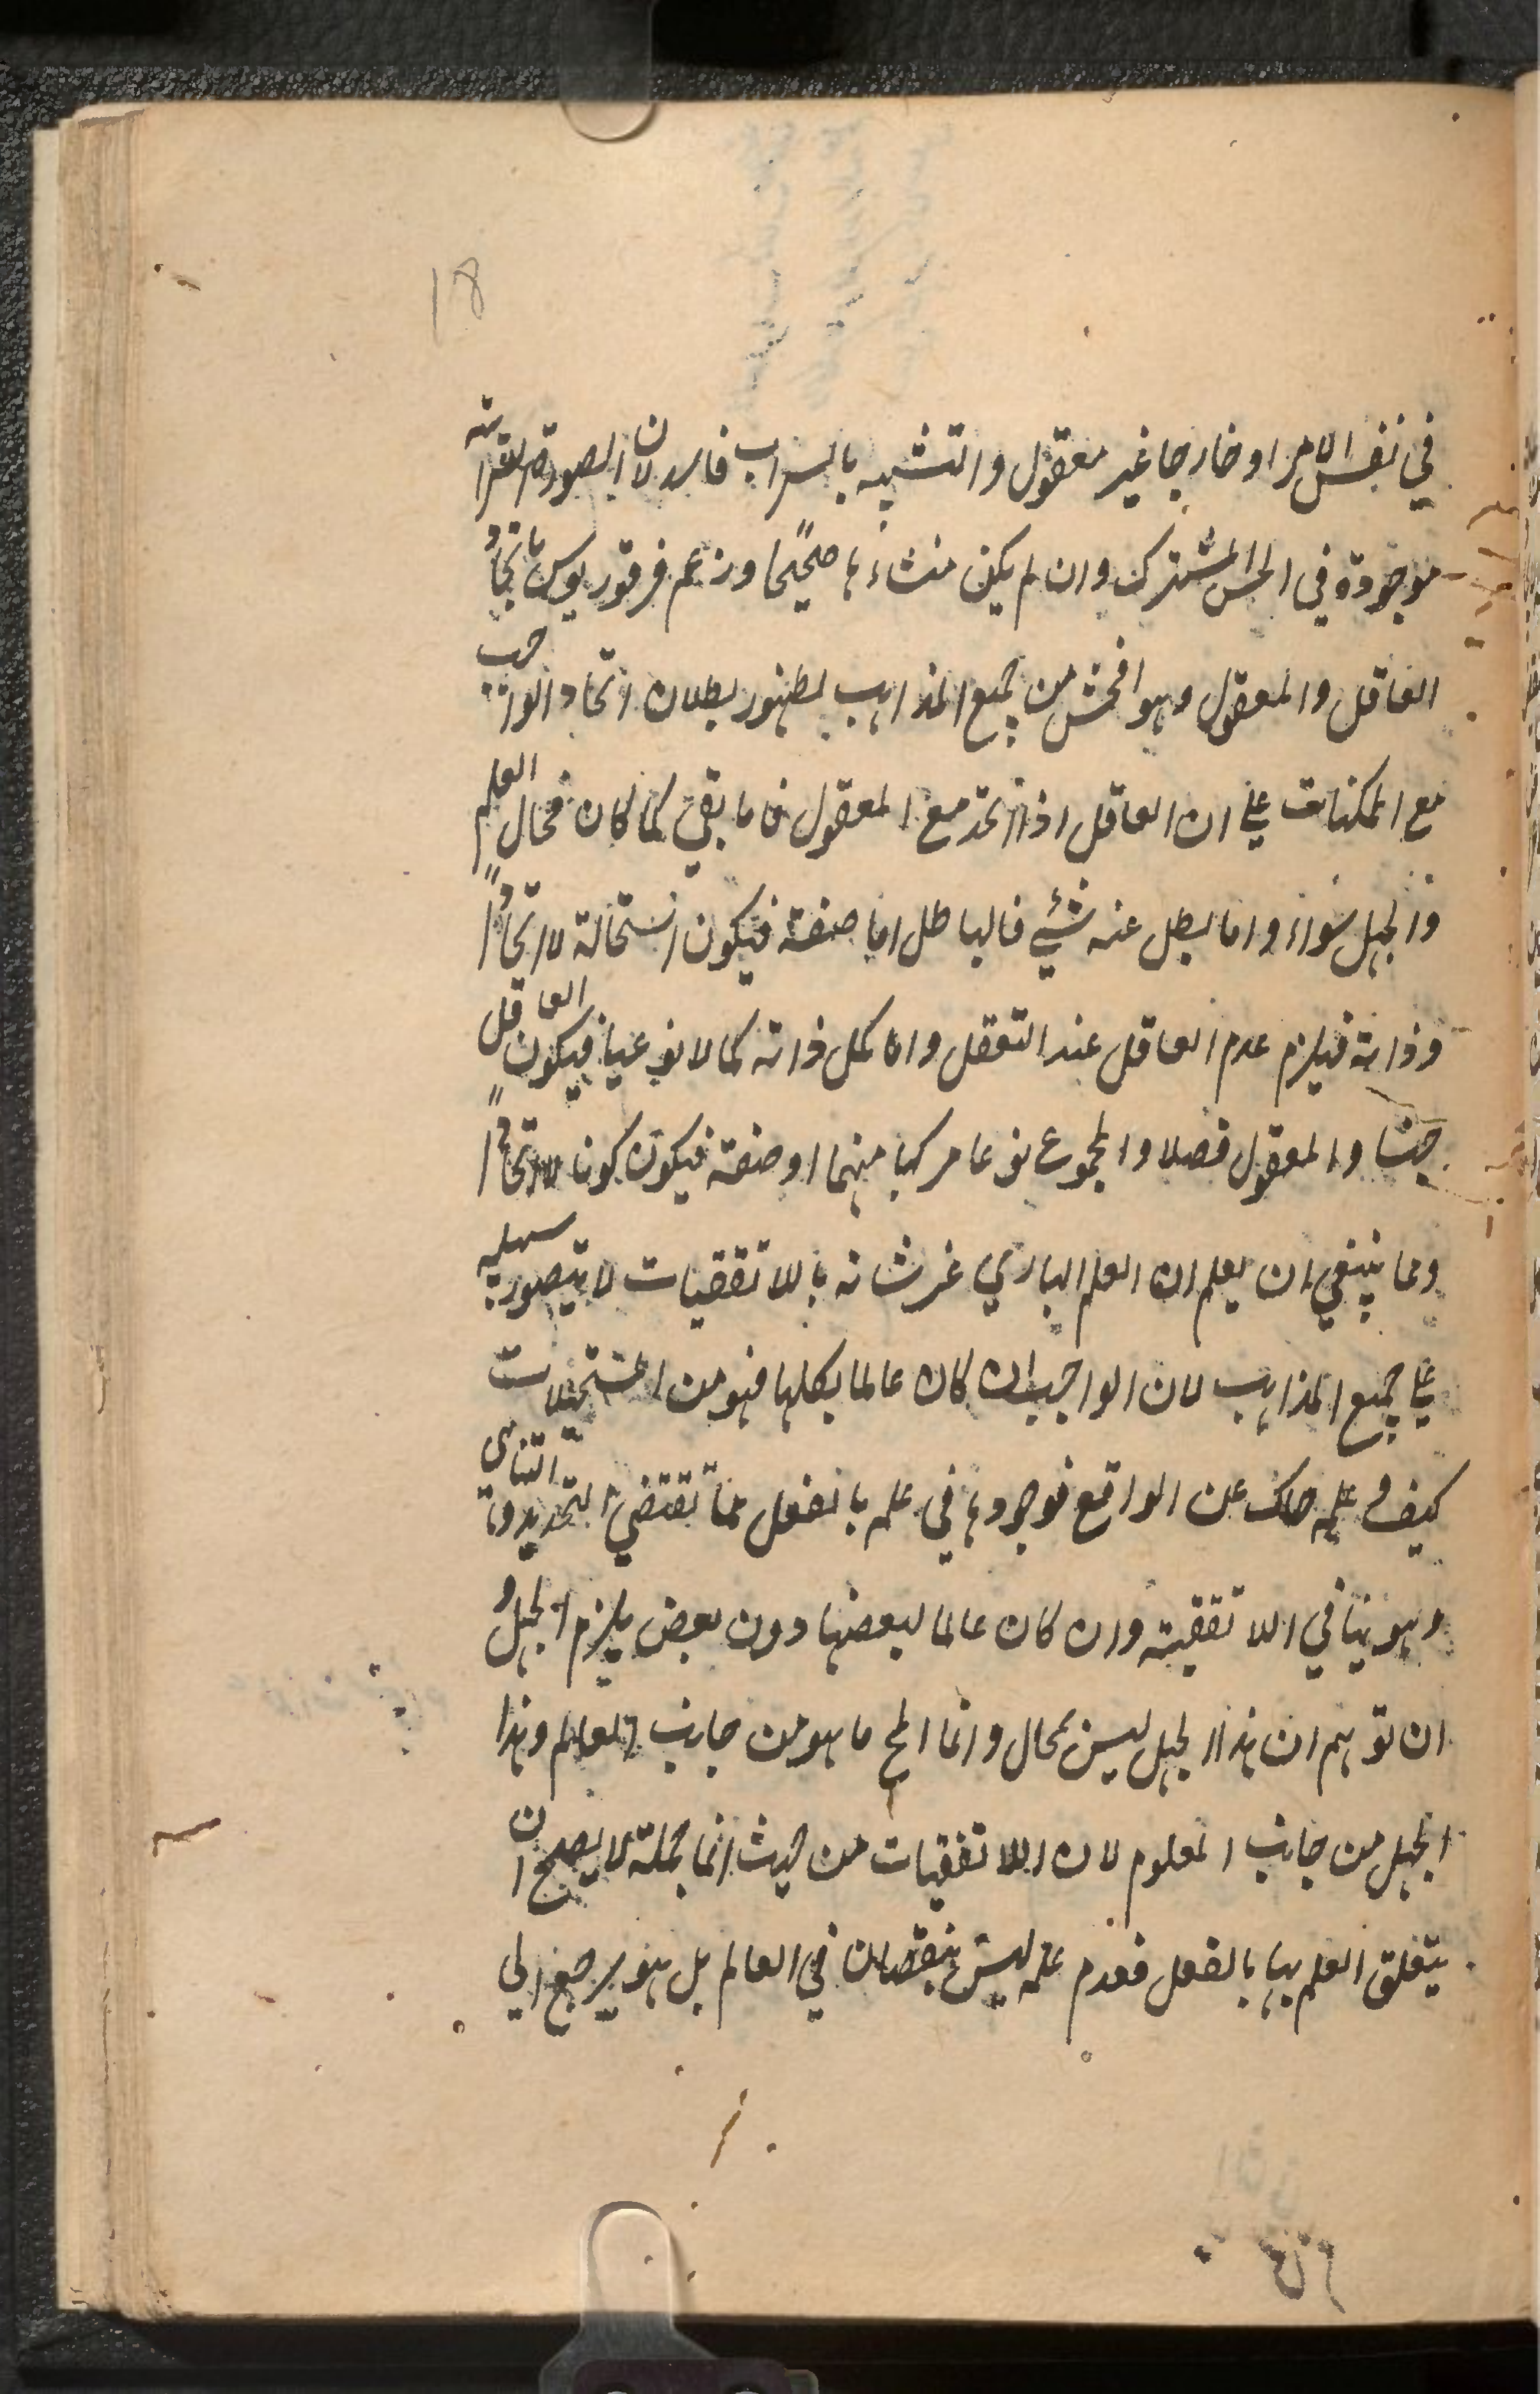 18
في نفس الامر او خارجا غير معقول والتشبيه بالسراب فاسد لان الصورة السرابية
موجودة في الحس المشترك وان لم يكن منشاءها صحيحًا وزعم فرفوريوس باتحاد
العاقل والمعقول وهو افحش من جميع المذاهب لظهور بطلان اتحاد الواجب
مع الممكنات على ان العاقل اذا اتحد مع المعقول فاما بقي كما كان فحال العلم
والجهل سواء واما بطل عنه شيء فالباطل اما صفة فيكون استحالة لا اتحادًا
وذاته فيلزم عدم العاقل عند التعقل وان كمل ذاته كمالا نوعيا فيكون العاقل
جنسا والمعقول فصلا والمجموع نوعا مركبا منهما او صفة فيكون كونا لا اتحادًا
ومما ينبغي ان يعلم ان العلم الباري عز شانه باللاتقفيات لا يتصور سبيله
على جميع المذاهب لان الواجب ان كان عالما بكلها فهو من المستحيلات
كيف وعلمه حاك عن الواقع فوجودها في علمه بالفعل مما تقتضي التحديد والتناهي
وهو ينافي اللاتقفية وان كان عالما ببعضها دون بعض يلزم الجهل و
ان توهم ان هذا الجهل ليس بمحال وانما المح ما هو من جانب العالم وهذا
الجهل من جانب المعلوم لان اللاتقفيات من حيث انها بجملة لا يصلح ان
يتعلق العلم بها بالفعل فعدم علمه ليس بنقصان في العالم بل هو يرجع الى